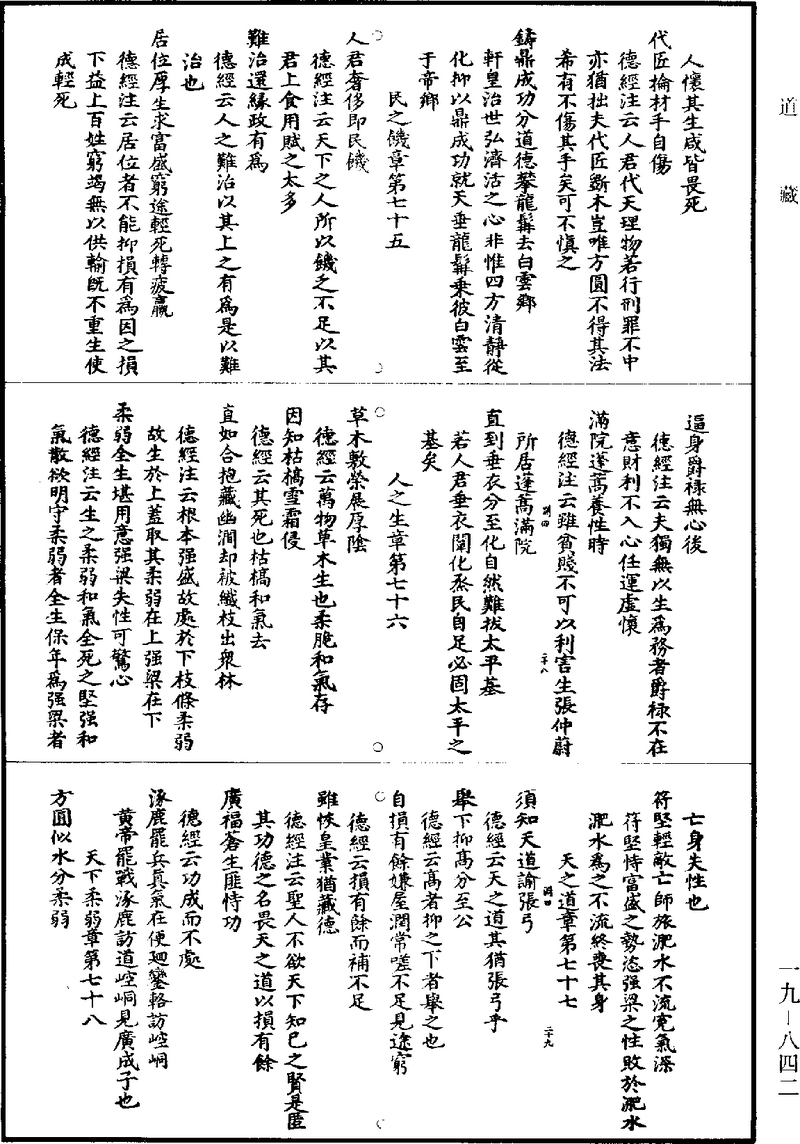 道藏
人懷其生咸皆畏死
代匠掄材手自傷
德經注云人君代天理物若行刑罪不中
亦猶拙夫代匠斲木豈唯方圓不得其法
希有不傷其手矣可不慎之
鑄鼎成功分道德攀龍髯去白雲鄉
軒皇治世弘濟活之心非惟四方清靜從
化抑以鼎成功就天垂龍髯乘彼白雲至
于帝鄉
民之饑章第七十五
人君奢侈即民饑
德經注云天下之人所以饑乏不足以其
君上食用賦之太多
難治還緣政有為
德經云人之難治以其上之有為是以難
治也
居位厚生求富盛窮途輕死轉疲羸
德經注云居位者不能抑損有為因之損
下益上百姓窮竭無以供輸既不重生使
成輕死
逼身爵祿無心後
德經注云夫獨無以生為務者爵祿不在
意財利不入心任運虛懷
滿院蓬蒿養性時
德經注云雖貧賤不可以利害生張仲蔚
所居蓬蒿滿院
直到垂衣分至化自然難拔太平基
若人君垂衣闡化烝民自足必固太平之
基矣
人之生章第七十六
草木敷榮展厚陰
德經云萬物草木生也柔脆和氣存
因知枯槁雪霜侵
德經云其死也枯槁和氣去
直如合抱藏幽澗却被纖枝出衆林
德經注云根本强盛故處於下枝條柔弱
故生於上蓋取其柔弱在上强梁在下
柔弱全生堪用意强梁失性可驚心
德經注云生之柔弱和氣全死之堅强和
氣散欲明守柔弱者全生保年為强梁者
亡身失性也
符堅輕敵亡師旅淝水不流寃氣深
符堅恃富盛之勢恣强梁之性敗於淝水
淝水為之不流終喪其身
天之道章第七十七
須知天道諭張弓
德經云天之道其猶張弓乎
舉下抑高分至公
德經云高者抑之下者舉之也
自損有餘嫌屋潤常嗟不足見途窮
德經云損有餘而補不足
雖恢皇業猶藏德
德經注云聖人不欲天下知已之賢是匿
其功德之名畏天之道以損有餘
廣福蒼生匪恃功
德經云功成而不處
涿鹿罷兵真氣在便廻鑾輅訪崆峒
黄帝罷戰涿鹿訪道崆峒見廣成子也
天下柔弱章第七十八
方圓似水分柔弱
一九－八四二